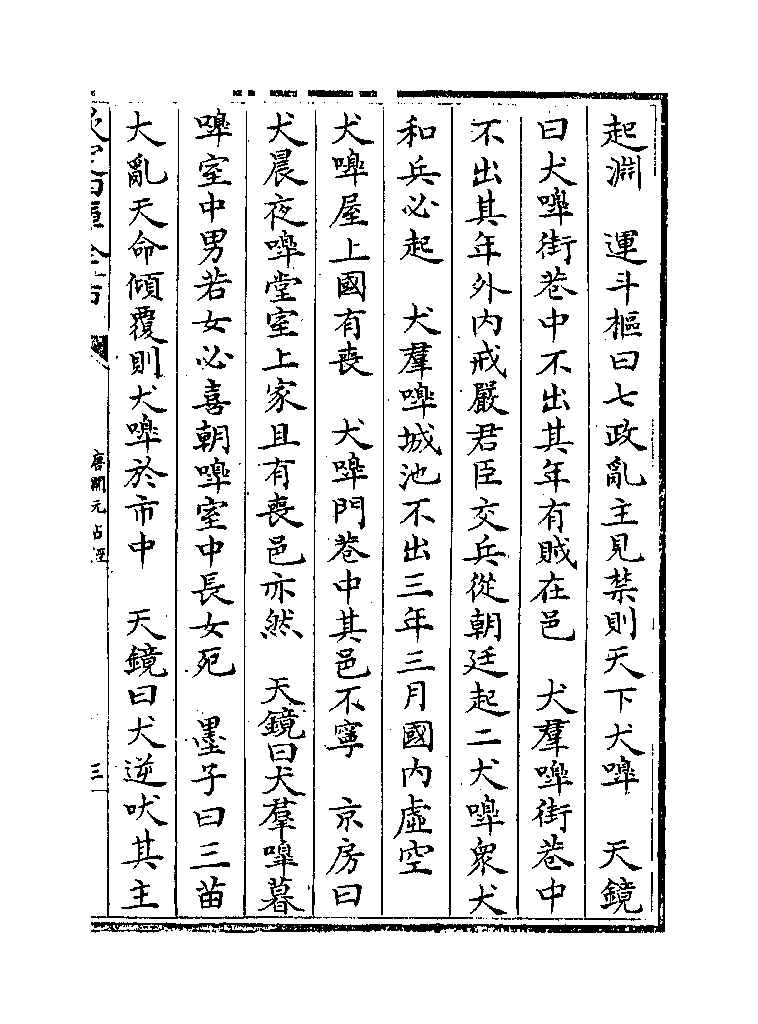 起淵　運斗樞曰七政亂主見禁則天下犬嘷　天鏡
曰犬嘷街巷中不出其年有賊在邑　犬羣嘷街巷中
不出其年外内戒嚴君臣交兵從朝廷起二犬嘷衆犬
和兵必起　犬羣嘷城池不出三年三月國内虛空
犬嘷屋上國有喪　犬嘷門巷中其邑不寧　京房曰
犬晨夜嘷堂室上家且有喪邑亦然　天鏡曰犬羣嘷暮
嘷室中男若女必喜朝嘷室中長女死　墨子曰三苗
大亂天命傾覆則犬嘷於市中　天鏡曰犬逆吠其主
欽定四庫全書
唐開元占經
三